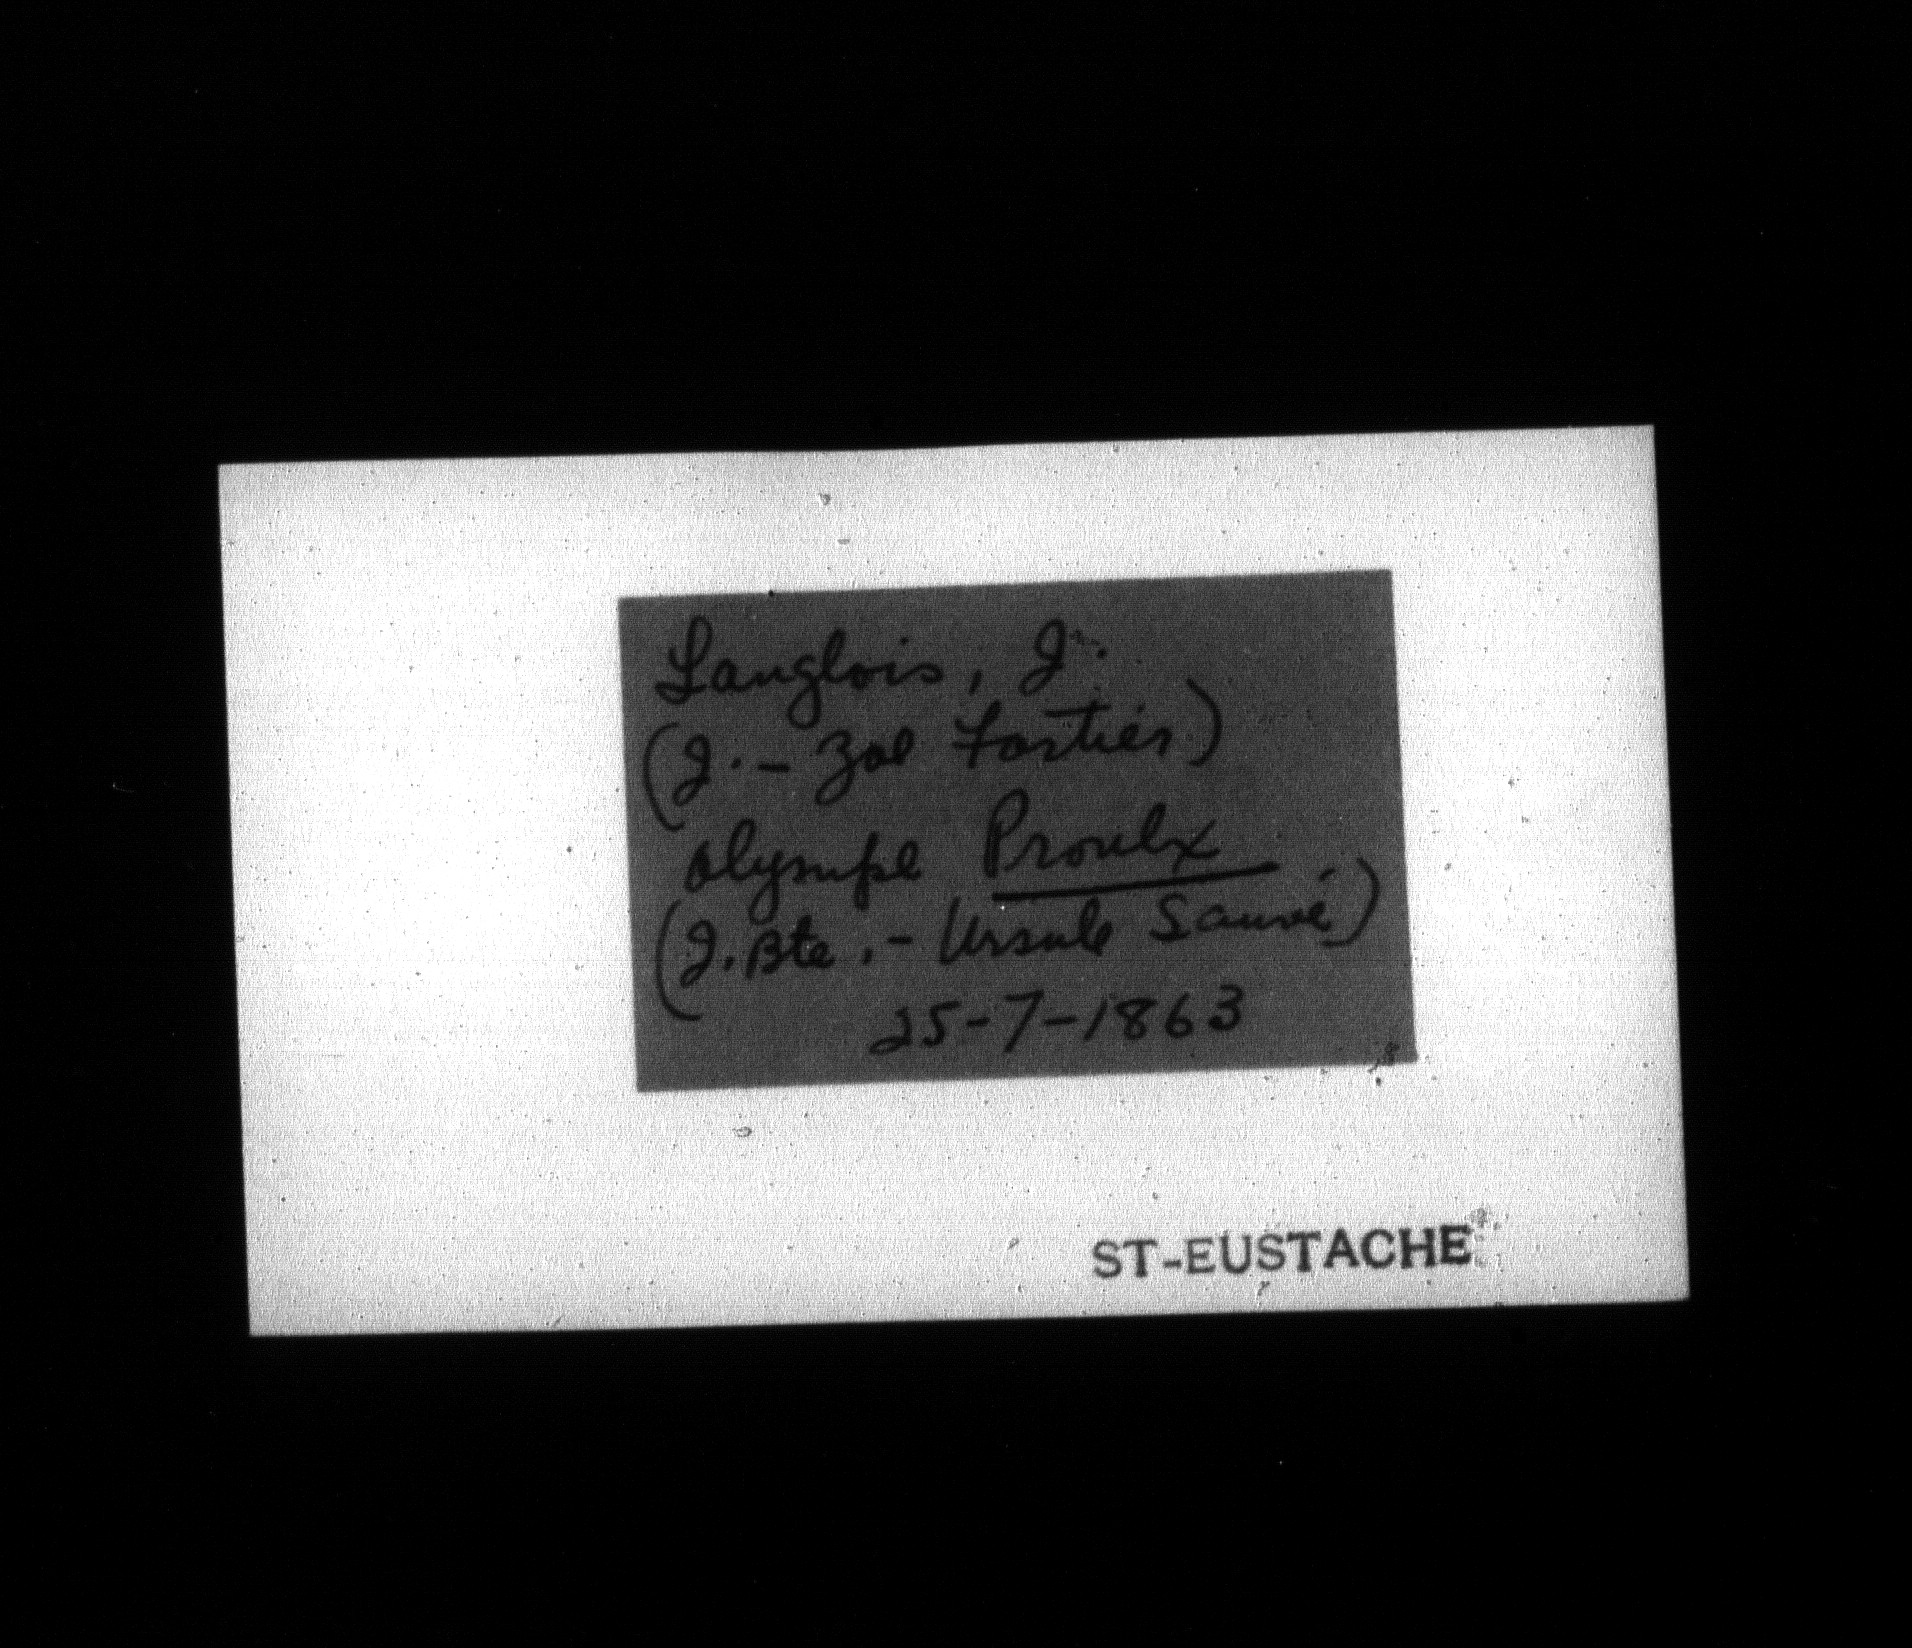 Langlois, J.
(J. - Zoé Fortier)
Olympe Proulx
(J. Bte. - Ursule Sauvé)
25-7-1863
ST-EUSTACHE